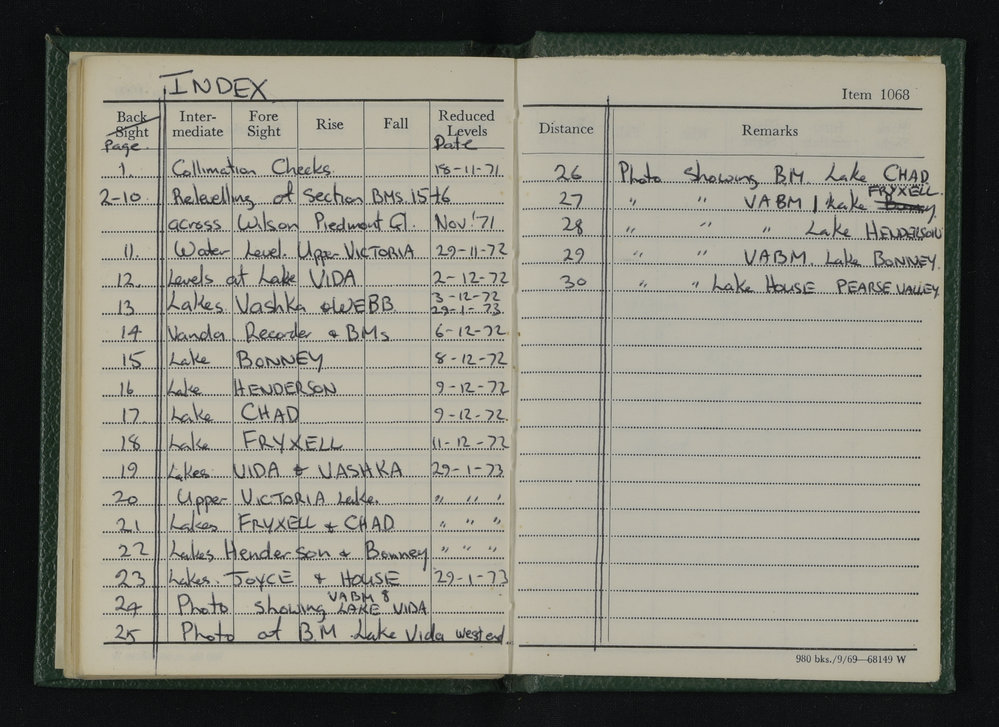 INDEX
Back Sight Inter-mediate Fore Sight Rise Fall Reduced Levels
Page. Date
1. Collimation Checks. 18-11-71
2-10 Relevelling of Section BMs. 15 to 6
across Wilson Piedmont Gl. Nov '71
11. Water Level. Upper VICTORIA 29-11-72
12. Levels at Lake VIDA 2-12-72
13 Lakes Vashka & WEBB 3-12-72
29-1-73
14 Vanda Recorder & BMs 6-12-72
15 Lake BONNEY 8-12-72
16 Lake HENDERSON 9-12-72
17. Lake CHAD 9-12-72
18 Lake FRYXELL 11-12-72
19 Lakes VIDA & VASHKA 29-1-73
20 Upper VICTORIA Lake. " " "
21 Lakes FRYXELL & CHAD " " "
22 Lakes Henderson & Bonney " " "
23 Lakes. JOYCE & HOUSE 29-1-73
24 Photo showing VABM 8 LAKE VIDA
25 Photo of B.M Lake Vida west end.
Item 1068
Distance Remarks
26 Photo showing BM. Lake CHAD
27 " " VABM 1 Lake Bonney FRYXELL
28 " " " Lake HENDERSON
29 " " VABM. Lake BONNEY.
30 " " Lake HOUSE PEARSE VALLEY.
980 bks./9/69—68149 W